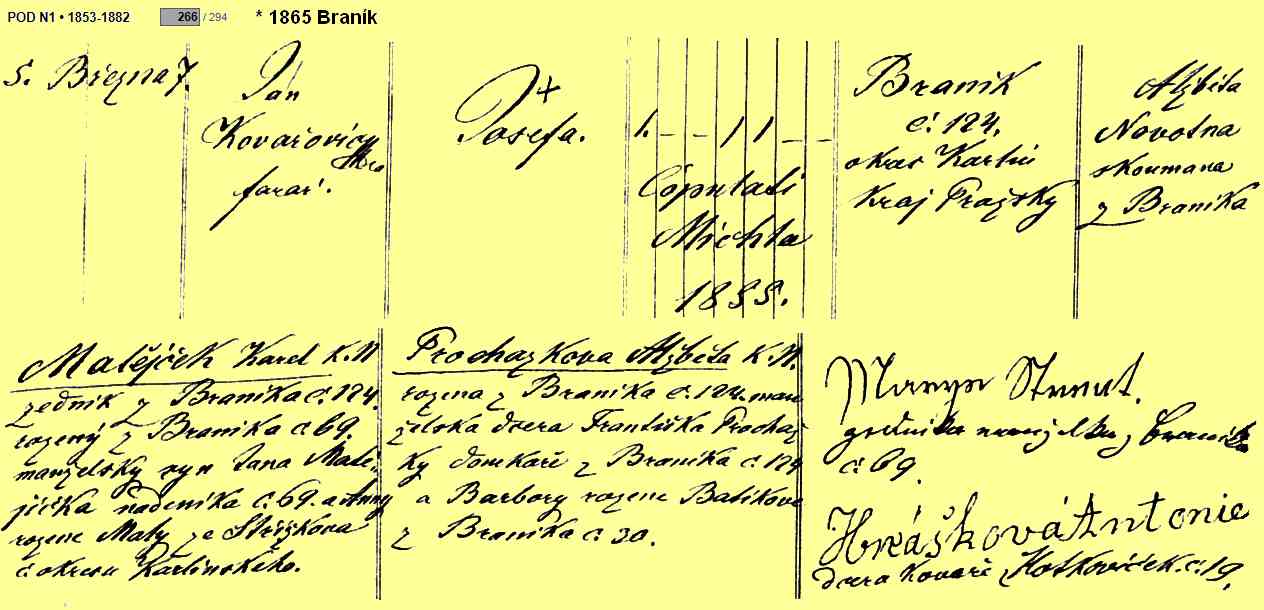 POD N1 • 1853-1882 266 / 294 * 1865 Braník
5. Března 7.
Ján
Kovařovic
farář.
Josefa.
1. – – 1 1 – –
Copulati
Michla
1855.
Braník
č. 124.
okres Karlín
Kraj Pražsky
Alžběta
Novotna
skoumana
z Braníka
Matějíček Karel K. N
zednik z Braníka č. 124.
rozený z Braníka č. 69.
manželsky syn Jana Matě
jíčka nadeníka č. 69. a Anny
rozene Maly ze Střižkova
č okresu Karlinského.
Prochazkova Alžběta K. N.
rozena z Braníka č. 124. man
želska dcera Františka Prochaz
ky domkaře z Braníka č. 124
a Barbory rozene Batikove
z Braníka č. 30.
Marya Strnut.
zedníka manželka z Braníka
č 69.
Hrášková Antonie
dcera kovaře z Hotkoviček. č. 19.